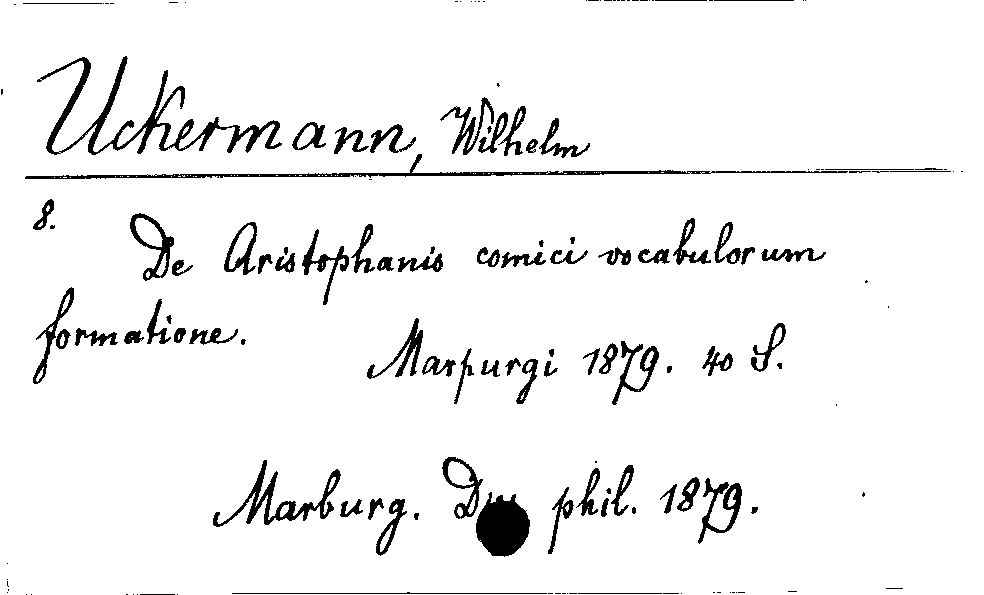 Uckermann, Wilhelm
8.
De Aristophanis comici vocabulorum
formatione.
Marpurgi 1879. 40 S.
Marburg. phil. 1879.